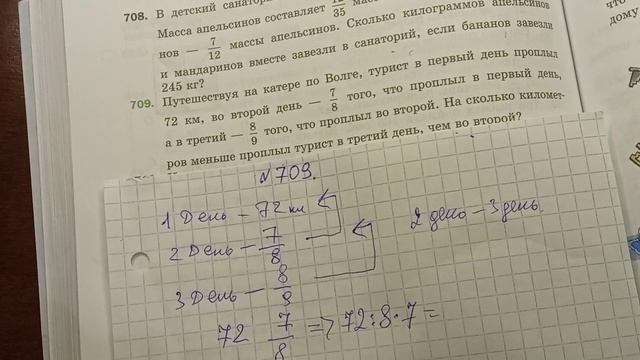 708. В детский санатори
Масса апельсинов составляет 12/35 мас
нов — 7/12 массы апельсинов. Сколько килограммов апельсинов
и мандаринов вместе завезли в санаторий, если бананов завезли
245 кг?
709. Путешествуя на катере по Волге, турист в первый день проплыл
72 км, во второй день — 7/8 того, что проплыл в первый день,
а в третий — 8/9 того, что проплыл во второй. На сколько километ-
ров меньше проплыл турист в третий день, чем во второй?
что
дому
N 709.
1 День – 72 км
2 День – 7/8
3 День – 8/9
2 день – 3 день
72 7/8 => 72:8·7=